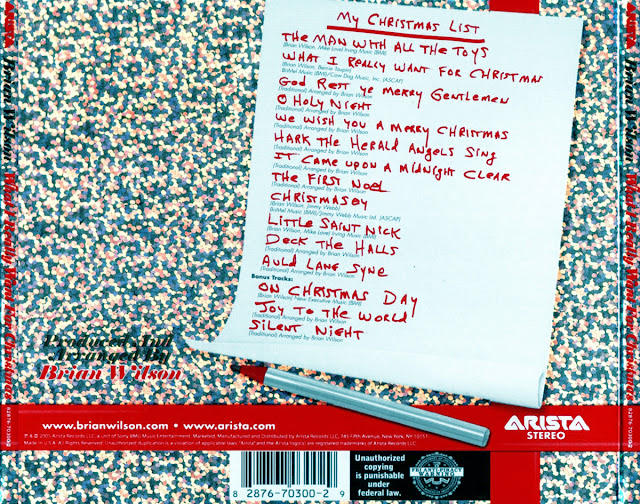 My CHRISTMAS LIST
THE MAN WITH ALL THE TOYS
(Brian Wilson, Mike Love) Irving Music (BMI)
WHAT I REALLY WANT FOR CHRISTMAS
(Brian Wilson, Bernie Taupin)
BriMel Music (BMI)/Cow Dog Music, Inc. (ASCAP)
GOD REST YE MERRY GENTLEMEN
(Traditional) Arranged by Brian Wilson
O HOLY NIGHT
(Traditional) Arranged by Brian Wilson
WE WISH YOU A MERRY CHRISTMAS
(Traditional) Arranged by Brian Wilson
HARK THE HERALD ANGELS SING
(Traditional) Arranged by Brian Wilson
IT CAME UPON A MIDNIGHT CLEAR
(Traditional) Arranged by Brian Wilson
THE FIRST NOEL
(Traditional) Arranged by Brian Wilson
CHRISTMASEY
(Brian Wilson, Jimmy Webb)
BriMel Music (BMI)/Jimmy Webb Music Ltd. (ASCAP)
LITTLE SAINT NICK
(Brian Wilson, Mike Love) Irving Music (BMI)
DECK THE HALLS
(Traditional) Arranged by Brian Wilson
AULD LANG SYNE
(Traditional) Arranged by Brian Wilson
Bonus Tracks:
ON CHRISTMAS DAY
(Brian Wilson) New Executive Music (BMI)
JOY TO THE WORLD
(Traditional) Arranged by Brian Wilson
SILENT NIGHT
(Traditional) Arranged by Brian Wilson
Produced And
Arranged By
Brian Wilson
www.brianwilson.com • www.arista.com
ARISTA
STEREO
℗ & © 2005 Arista Records LLC, a unit of Sony BMG Music Entertainment. Marketed, Manufactured and Distributed by Arista Records LLC, 745 Fifth Avenue, New York, NY 10151.
Made in U.S.A. All Rights Reserved. Unauthorized duplication is a violation of applicable laws. "Arista" and the Arista logo(s) are registered trademarks of Arista Records LLC
8 2876-70300-2 9
Unauthorized
copying
is punishable
under
federal law.
FBI ANTI-PIRACY
WARNING
ARISTA
Brian Wilson
What I Really Want For Christmas
82876-70300-2
ARISTA
Brian Wilson
What I Really Want For Christmas
82876-70300-2